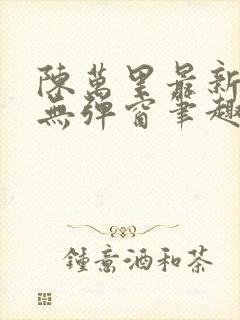 陳萬里最新
無彈窗筆趣
鍾意酒和茶